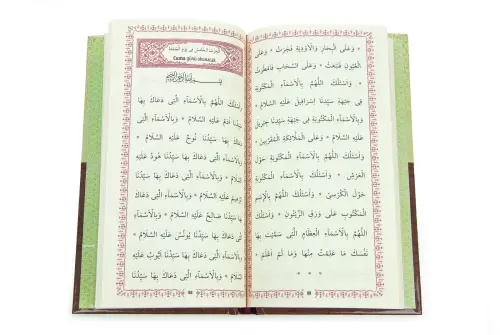 * وَعَلَى الْبِحَارِ وَالْاَوْدِيَةِ فَجَرَتْ * وَعَلَى
الْعُيُونِ فَنَبَعَتْ * وَعَلَى السَّحَابِ فَاَمْطَرَتْ
* وَاَسْئَلُكَ اللّٰهُمَّ بِالْاَسْمَاءِ الْمَكْتُوبَةِ
فِى جَبْهَةِ سَيِّدِنَا اِسْرَافِيلَ عَلَيْهِ السَّلَامُ *
وَبِالْاَسْمَاءِ الْمَكْتُوبَةِ فِى جَبْهَةِ سَيِّدِنَا جِبْرِيلَ
عَلَيْهِ السَّلَامُ * وَعَلَى الْمَلَائِكَةِ الْمُقَرَّبِينَ *
وَاَسْئَلُكَ اللّٰهُمَّ بِالْاَسْمَاءِ الْمَكْتُوبَةِ حَوْلَ
الْعَرْشِ * وَاَسْئَلُكَ اللّٰهُمَّ بِالْاَسْمَاءِ الْمَكْتُوبَةِ
حَوْلَ الْكُرْسِىِّ * وَاَسْئَلُكَ اللّٰهُمَّ بِالْاِسْمِ
الْمَكْتُوبِ عَلَى وَرَقِ الزَّيْتُونِ * وَاَسْئَلُكَ
اللّٰهُمَّ بِالْاَسْمَاءِ الْعِظَامِ الَّتِى سَمَّيْتَ بِهَا
نَفْسَكَ مَا عَلِمْتُ مِنْهَا وَمَا لَمْ اَعْلَمْ *
اَلْحِزْبُ الْخَامِسُ فِى يَوْمِ الْجُمْعَةِ
Cuma günü okunacak
وَاَسْئَلُكَ اللّٰهُمَّ بِالْاَسْمَاءِ الَّتِى دَعَاكَ بِهَا
سَيِّدُنَا اٰدَمُ عَلَيْهِ السَّلَامُ * وَبِالْاَسْمَاءِ الَّتِى
دَعَاكَ بِهَا سَيِّدُنَا نُوحٌ عَلَيْهِ السَّلَامُ *
وَبِالْاَسْمَاءِ الَّتِى دَعَاكَ بِهَا سَيِّدُنَا هُودٌ عَلَيْهِ
السَّلَامُ * وَبِالْاَسْمَاءِ الَّتِى دَعَاكَ بِهَا سَيِّدُنَا
عَلَيْهِ السَّلَامُ * وَبِالْاَسْمَاءِ الَّتِى دَعَاكَ
بِهَا سَيِّدُنَا صَالِحٌ عَلَيْهِ السَّلَامُ * وَبِالْاَسْمَاءِ
الَّتِى دَعَاكَ بِهَا سَيِّدُنَا يُونُسُ عَلَيْهِ السَّلَامُ
* وَبِالْاَسْمَاءِ الَّتِى دَعَاكَ بِهَا سَيِّدُنَا اَيُّوبُ عَلَيْهِ
السَّلَامُ * وَبِالْاَسْمَاءِ الَّتِى دَعَاكَ بِهَا سَيِّدُنَا